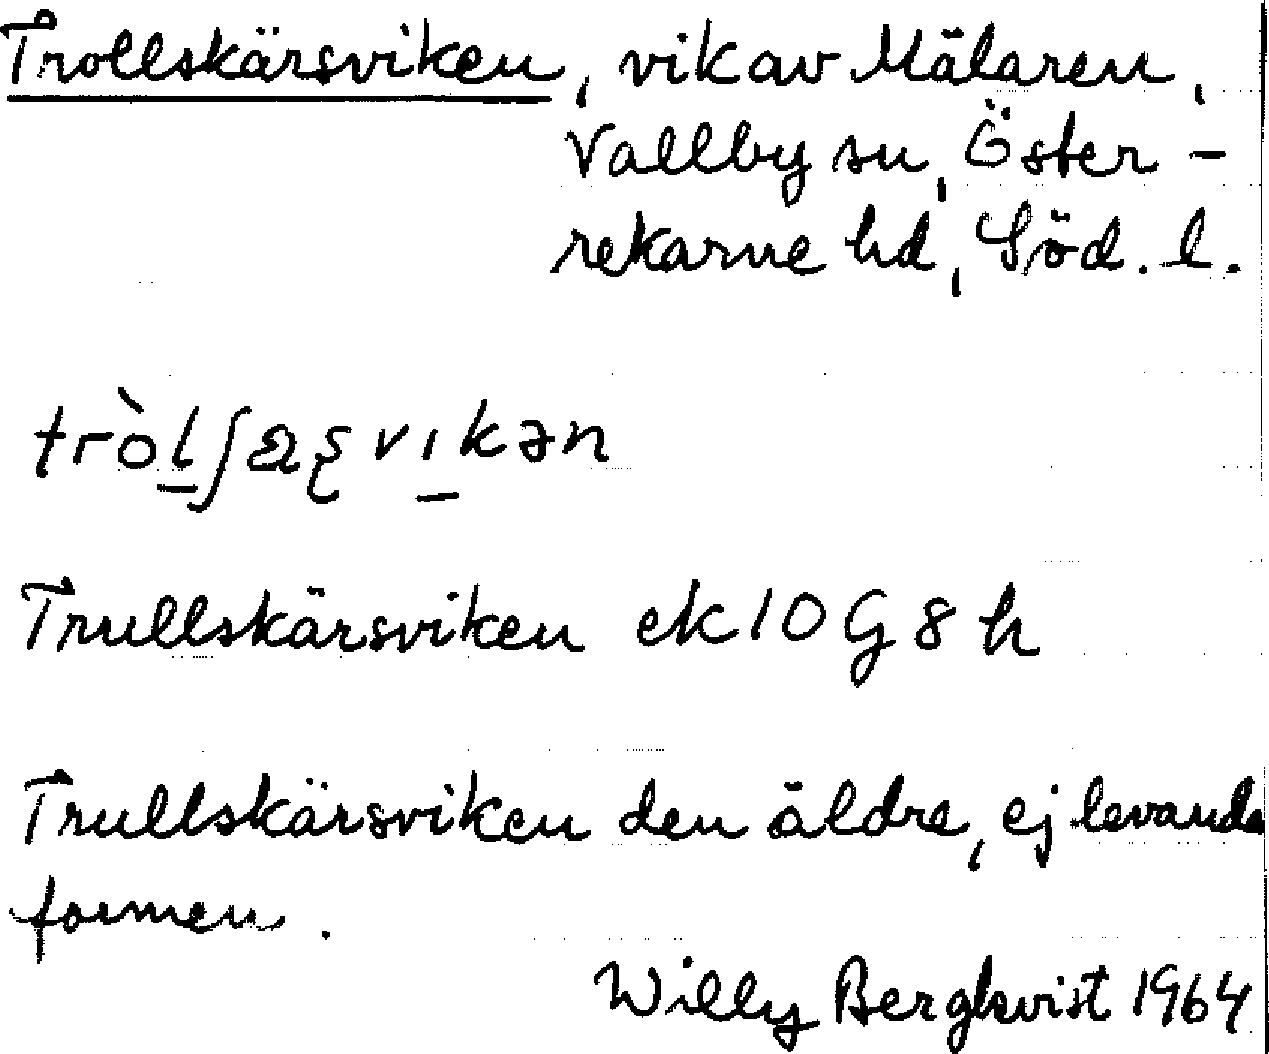 Trollskärsviken, vik av Mälaren,
Vallby sn, Öster-
rekarne hd, Söd. l.
tròlʃæʂvıkən
Trullskärsviken ek 10 G 8 h
Trullskärsviken den äldre, ej levande
formen.
Willy Bergkvist 1964